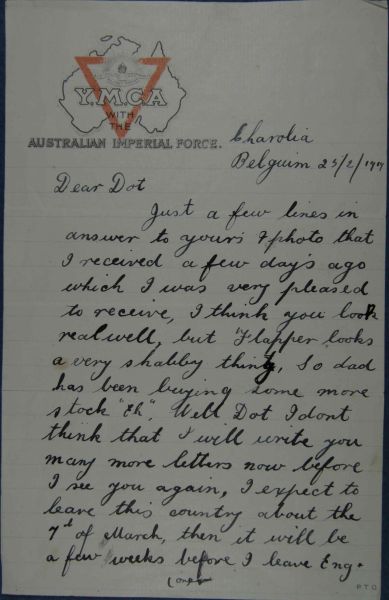 Y.M.C.A
WITH
THE
AUSTRALIAN IMPERIAL FORCE.
Charolia
Belguim 25/2/1919
Dear Dot
Just a few lines in
answer to your's & photo that
I received a few day's ago
which I was very pleased
to receive, I think you look
real well, but "Flapper looks
a very shabby thing, So dad
has been buying some more
stock "Eh". Well Dot I dont
think that I will write you
many more letters now before
I see you again, I expect to
leave this country about the
7th of March, then it will be
a few weeks before I leave Eng.
(over
P.T.O